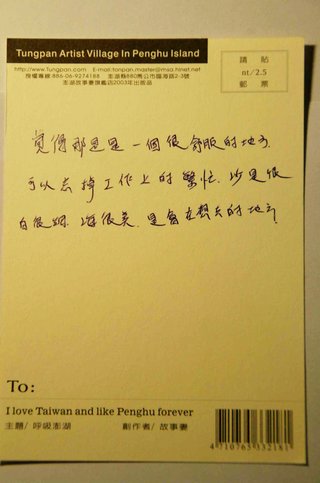 Tungpan Artist Village In Penghu Island
http://www.Tungpan.com E-mail:tonpan.master@msa.hinet.net
授權專線:886-06-9274188 澎湖縣880馬公市臨海路2-3號
澎湖故事妻旗艦店2003年出版品
請貼
nt/2.5
郵票
覺得那邊是一個很舒服的地方
可以忘掉工作上的繁忙. 沙是很
白很細. 海很美. 是會在想去的地方.
To:
I love Taiwan and like Penghu forever
主題/ 呼吸澎湖 創作者/ 故事妻
4710765332181